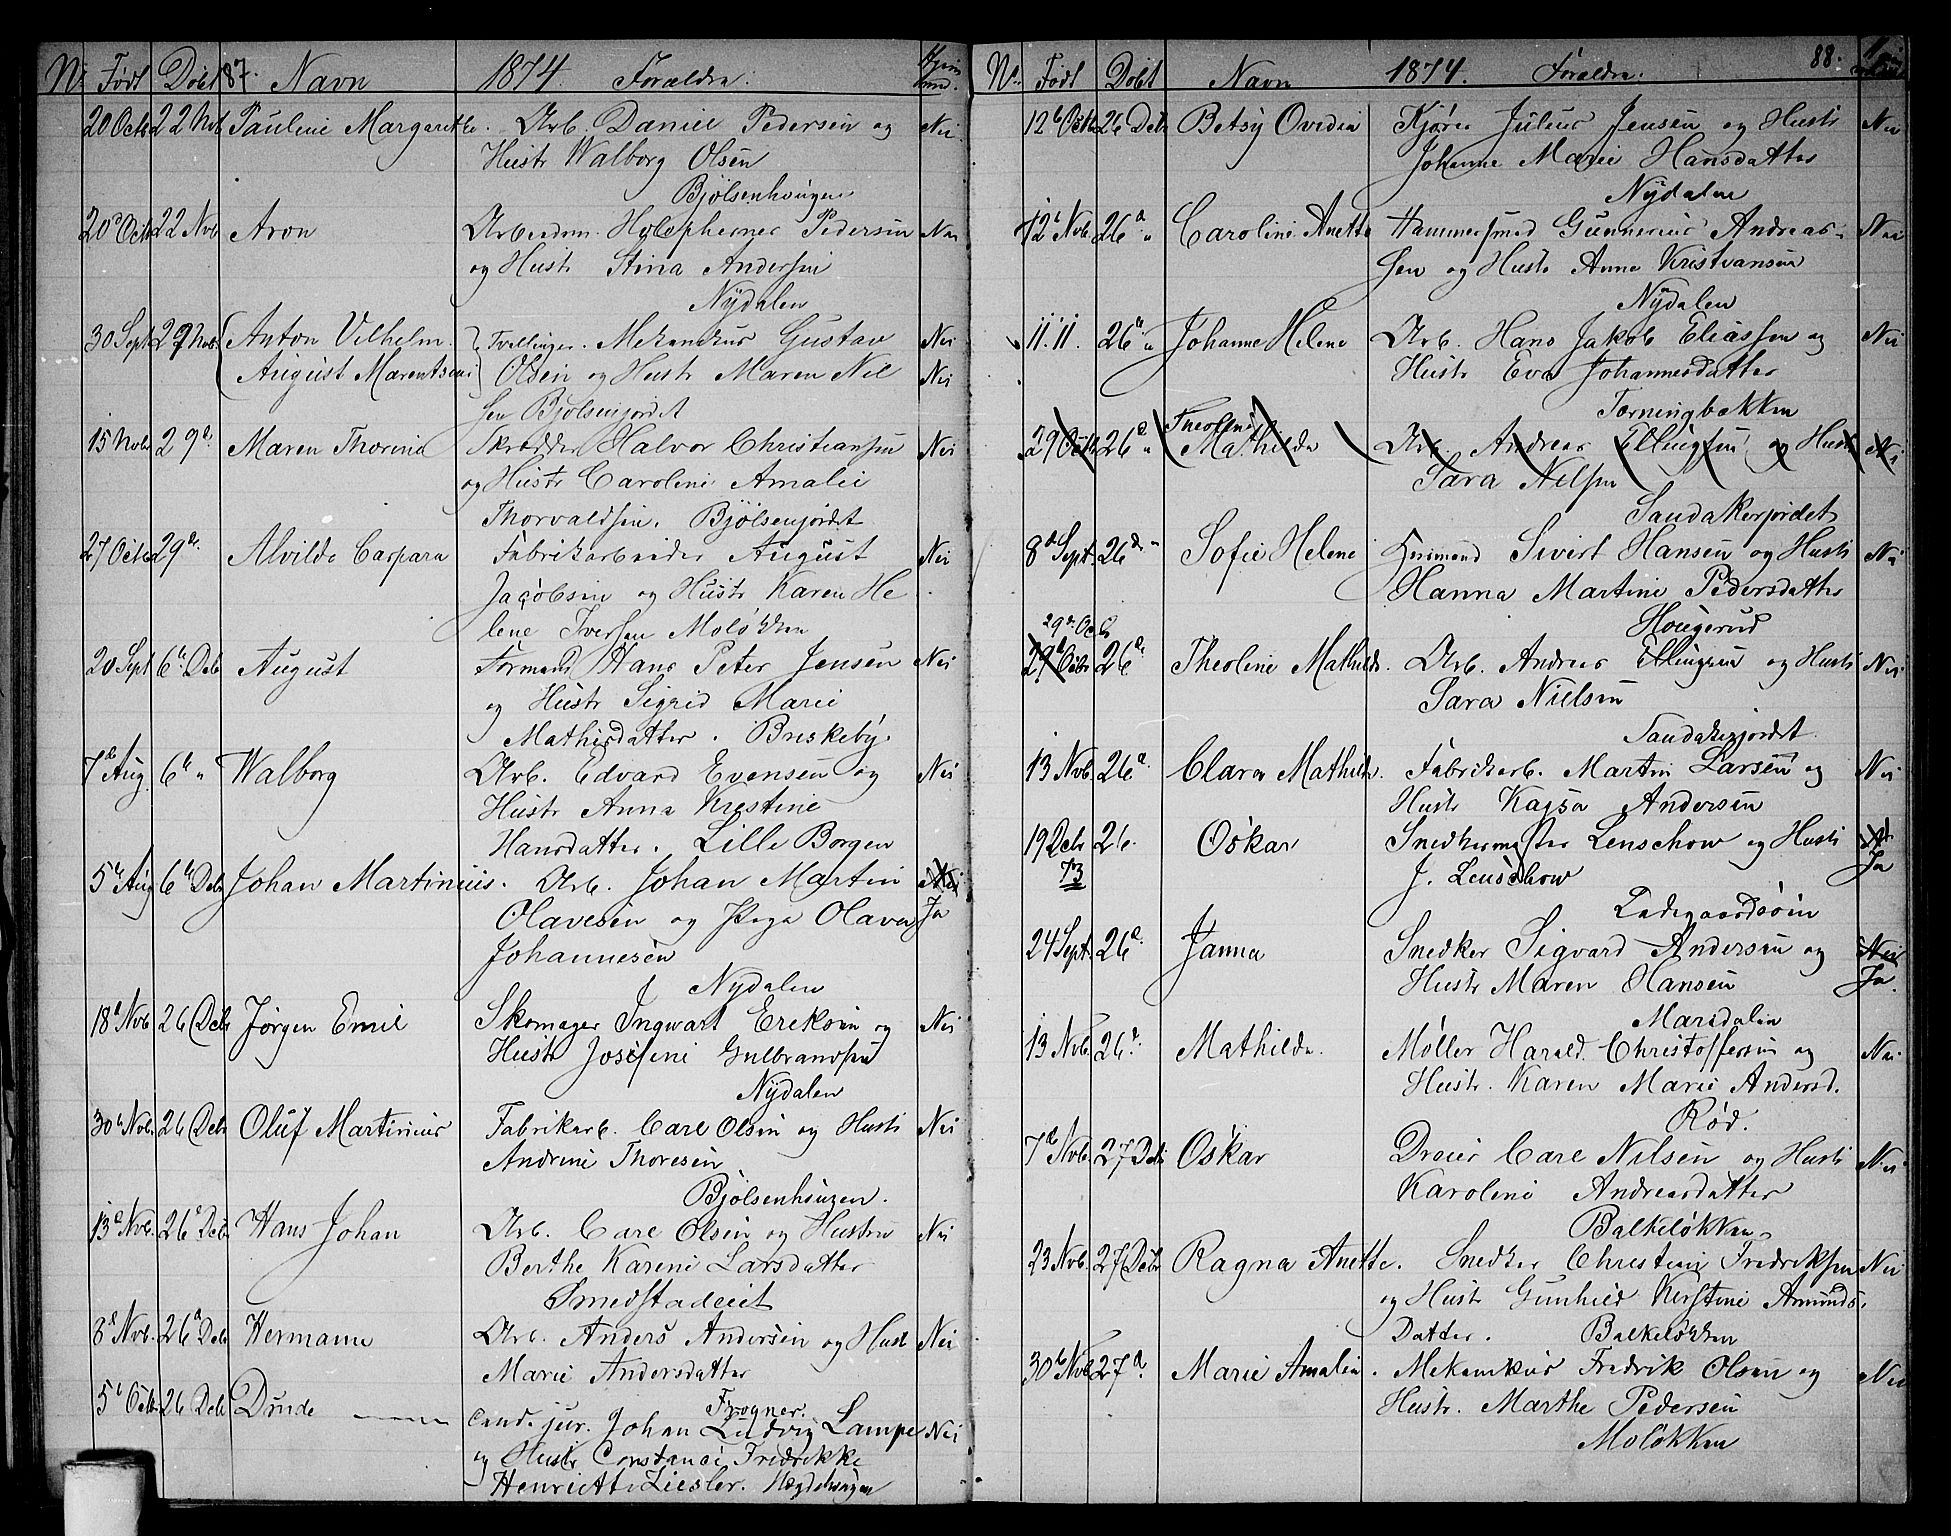 Nr. Født Døbt 87. Navn 1874 Forældre:
20 Octb 22 Nvb Pauline Margarethe. Arb. Daniel Pedersen og Nei
Hustr Walborg Olsen
Bjølsenhougen
20d Octb 22 Nvb Aron Arbeidsm. Holophernes Pedersen Nei
og Hustr Stina Andersen
Nydalen
30 Sept 29 Novb Anton Vilhelm. Tvillinger. Mekanikus Gustav Nei
August Marentsius Olsen og Hustr Maren Niel Nei
sen Bjølsenjordet
15 Novb 29d. Maren Thorina Skrædder Halvor Christiansen Nei
og Hustr Caroline Amalie
Thorvaldsen. Bjølsenjordet
27 Octb 29de. Alvilde Caspara Fabrikarbeider August Nei
Jacobsen og Hustr Karen He
lene Iversen Moløkken
20 Sept 6te Deb August Formand Hans Peter Jensen Nei
og Hustr Sigrid Marie
Mathisdatter. Briskeby.
7d Aug 6te " Walborg Arb. Edvard Evensen og Nei
Hustr Anna Kristine
Hansdatter. Lille Borgen
5te Aug 6te Deb Johan Martinius. Arb. Johan Martin Nei
Olavesen og Olava Ja
Johannesen
Nydalen
18d Nvb 26 Deb Jørgen Emil Skomager Ingwart Ereksen og Nei
Hustr Josefine Gulbrandsen
Nydalen
30te Nvb. 26 Deb Oluf Martinius Fabrikarb. Carl Olsen og Hustr Nei
Andrine Thoresen
Bjølsenhougen.
13d Nvb. 26d Deb Hans Johan Arb. Carl Olsen og Hustru Nei
Berthe Karine Larsdatter
Smedstadeiet
8d Nvb. 26d Deb Hermann Arb. Anders Andersen og Hustr Nei
Marie Andersdatter
Frogner.
5te Octb 26 Deb Drude Cand. jur. Johan Ludvig Lampe Nei
og Hustr Constance Fredrikke
Henriette Ziesler. Hægdehougen
Nr. Født Døbt Navn 1874. Forældre: 88.
12te Octb 26 Deb Betsy Ovidia Kjører Julius Jensen og Hustr Nei
Johanne Marie Hansdatter
Nydalen
12te Nvb. 26d " Caroline Anette Hammersmed Gunnerius Andreas- Nei
sen og Hustr Anne Kristiansen
Nydalen
11.11. 26d " Johanne Helene Arb. Hans Jakob Eliassen og Nei
Hustr Eva Johannesdatter
Torningbakken
Theoline
29 Octb 26d " Mathilde Arb. Andreas Ellingsen og Hustr Nei
Sara Nilsen
Sandakerjordet
8d Sept. 26de " Sofie Helene Sivert Hansen og Hustr Nei
Hanna Martine Pedersdatter
Hougerud
29d. Octb
29d Octb 26d. Theoline Mathilde. Arb. Andreas Ellingsen og Hustr Nei
Sara Nielsen
Sandakerjordet.
13 Nvb. 26d. Clara Mathilde. Fabrikarb. Martin Larsen og Nei
Hustr Kajsa Andersen
19 Deb 26. Oskar Snedkermester Lenschow og Hustr Nei
73 J. Lenschow Ja
Ladegaardsøen
24 Sept. 26d. Janna Snedker Sigvard Andersen og Nei
Hustr Maren Hansen Ja.
Maridalen
13 Nvb. 26d. Mathilde. Møller Harald Christoffersen og Nei
Hustr. Karen Marie Andersd.
Rød.
7d Nvb. 27 Deb Oskar Dreier Carl Nilsen og Hustr Nei
Karoline Andreasdatter
Balkeløkken
23 Nvb. 27 Deb Ragna Anette. Snedker Christian Fredriksen Nei
og Hustr Gunhild Kerstine Amunds
Datter. Balkeløkken
30te Nvb 27d. Marie Amalia. Mekanikus Fredrik Olsen og Nei
Hustr. Marthe Pedersen
Moløkken